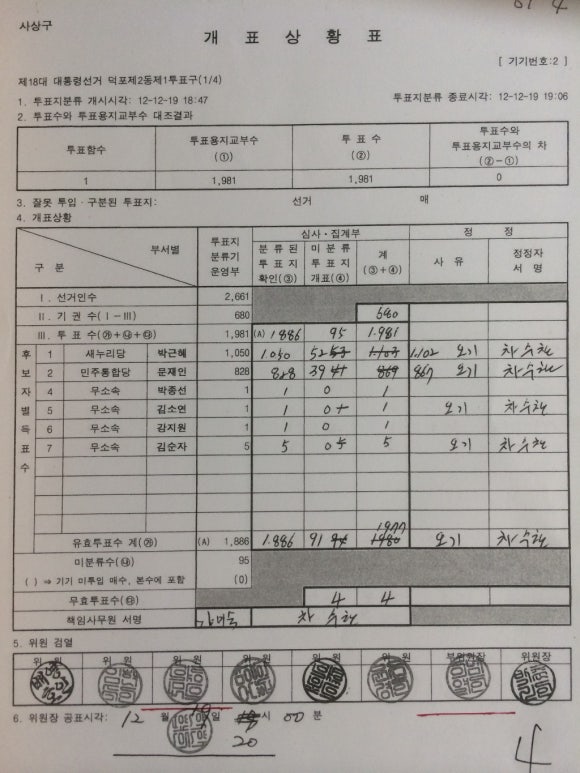 사상구
개 표 상 황 표
[ 기기번호:2 ]
제18대 대통령선거 덕포제2동제1투표구(1/4)
1. 투표지분류 개시시각: 12-12-19 18:47 투표지분류 종료시각: 12-12-19 19:06
2. 투표수와 투표용지교부수 대조결과
투표함수 투표용지교부수 (①) 투 표 수 (②) 투표수와 투표용지교부수의 차 (②-①)
1 1,981 1,981 0
3. 잘못 투입·구분된 투표지: 선거 매
4. 개표상황
구 분 부서별 투표지 분류기 운영부 심사·집계부 정 정
분 류 된 투 표 지 확인(③) 미 분 류 투 표 지 개표(④) 계 (③+④) 사 유 정정자 서 명
Ⅰ. 선거인수 2,661
Ⅱ. 기 권 수(Ⅰ-Ⅲ) 680 680
Ⅲ. 투 표 수(㉮+㉯+㉰) 1,981 (A) 1886 95 1.981
후보자별득표수
1 새누리당 박근혜 1,050 1.050 52 1.102 오기
2 민주통합당 문재인 828 828 39 41 869 867 오기
4 무소속 박종선 1 1 0 1
5 무소속 김소연 1 1 0 1 오기
6 무소속 강지원 1 1 0 1
7 무소속 김순자 5 5 0 5 오기
유효투표수 계(㉮) (A) 1,886 1.886 91 94 1977 1980 오기
미분류수(㉯) 95
( ) ⇒ 기기 미투입 매수, 본수에 포함 (0)
무효투표수(㉰) 4 4
책임사무원 서명
5. 위원 검열
위 원 위 원 위 원 위 원 위 원 위 원 부위원장 위원장
6. 위원장 공표시각: 12 월 19 일 시 00 분
20
4